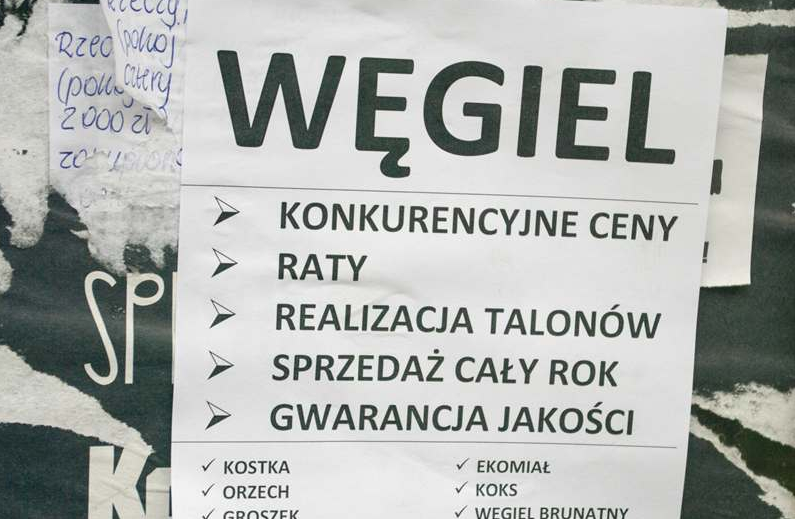 Rzec
(pokoj
cztery
2000 zł
WĘGIEL
KONKURENCYJNE CENY
RATY
REALIZACJA TALONÓW
SPRZEDAŻ CAŁY ROK
GWARANCJA JAKOŚCI
KOSTKA
ORZECH
GROSZEK
EKOMIAŁ
KOKS
WĘGIEL BRUNATNY
!